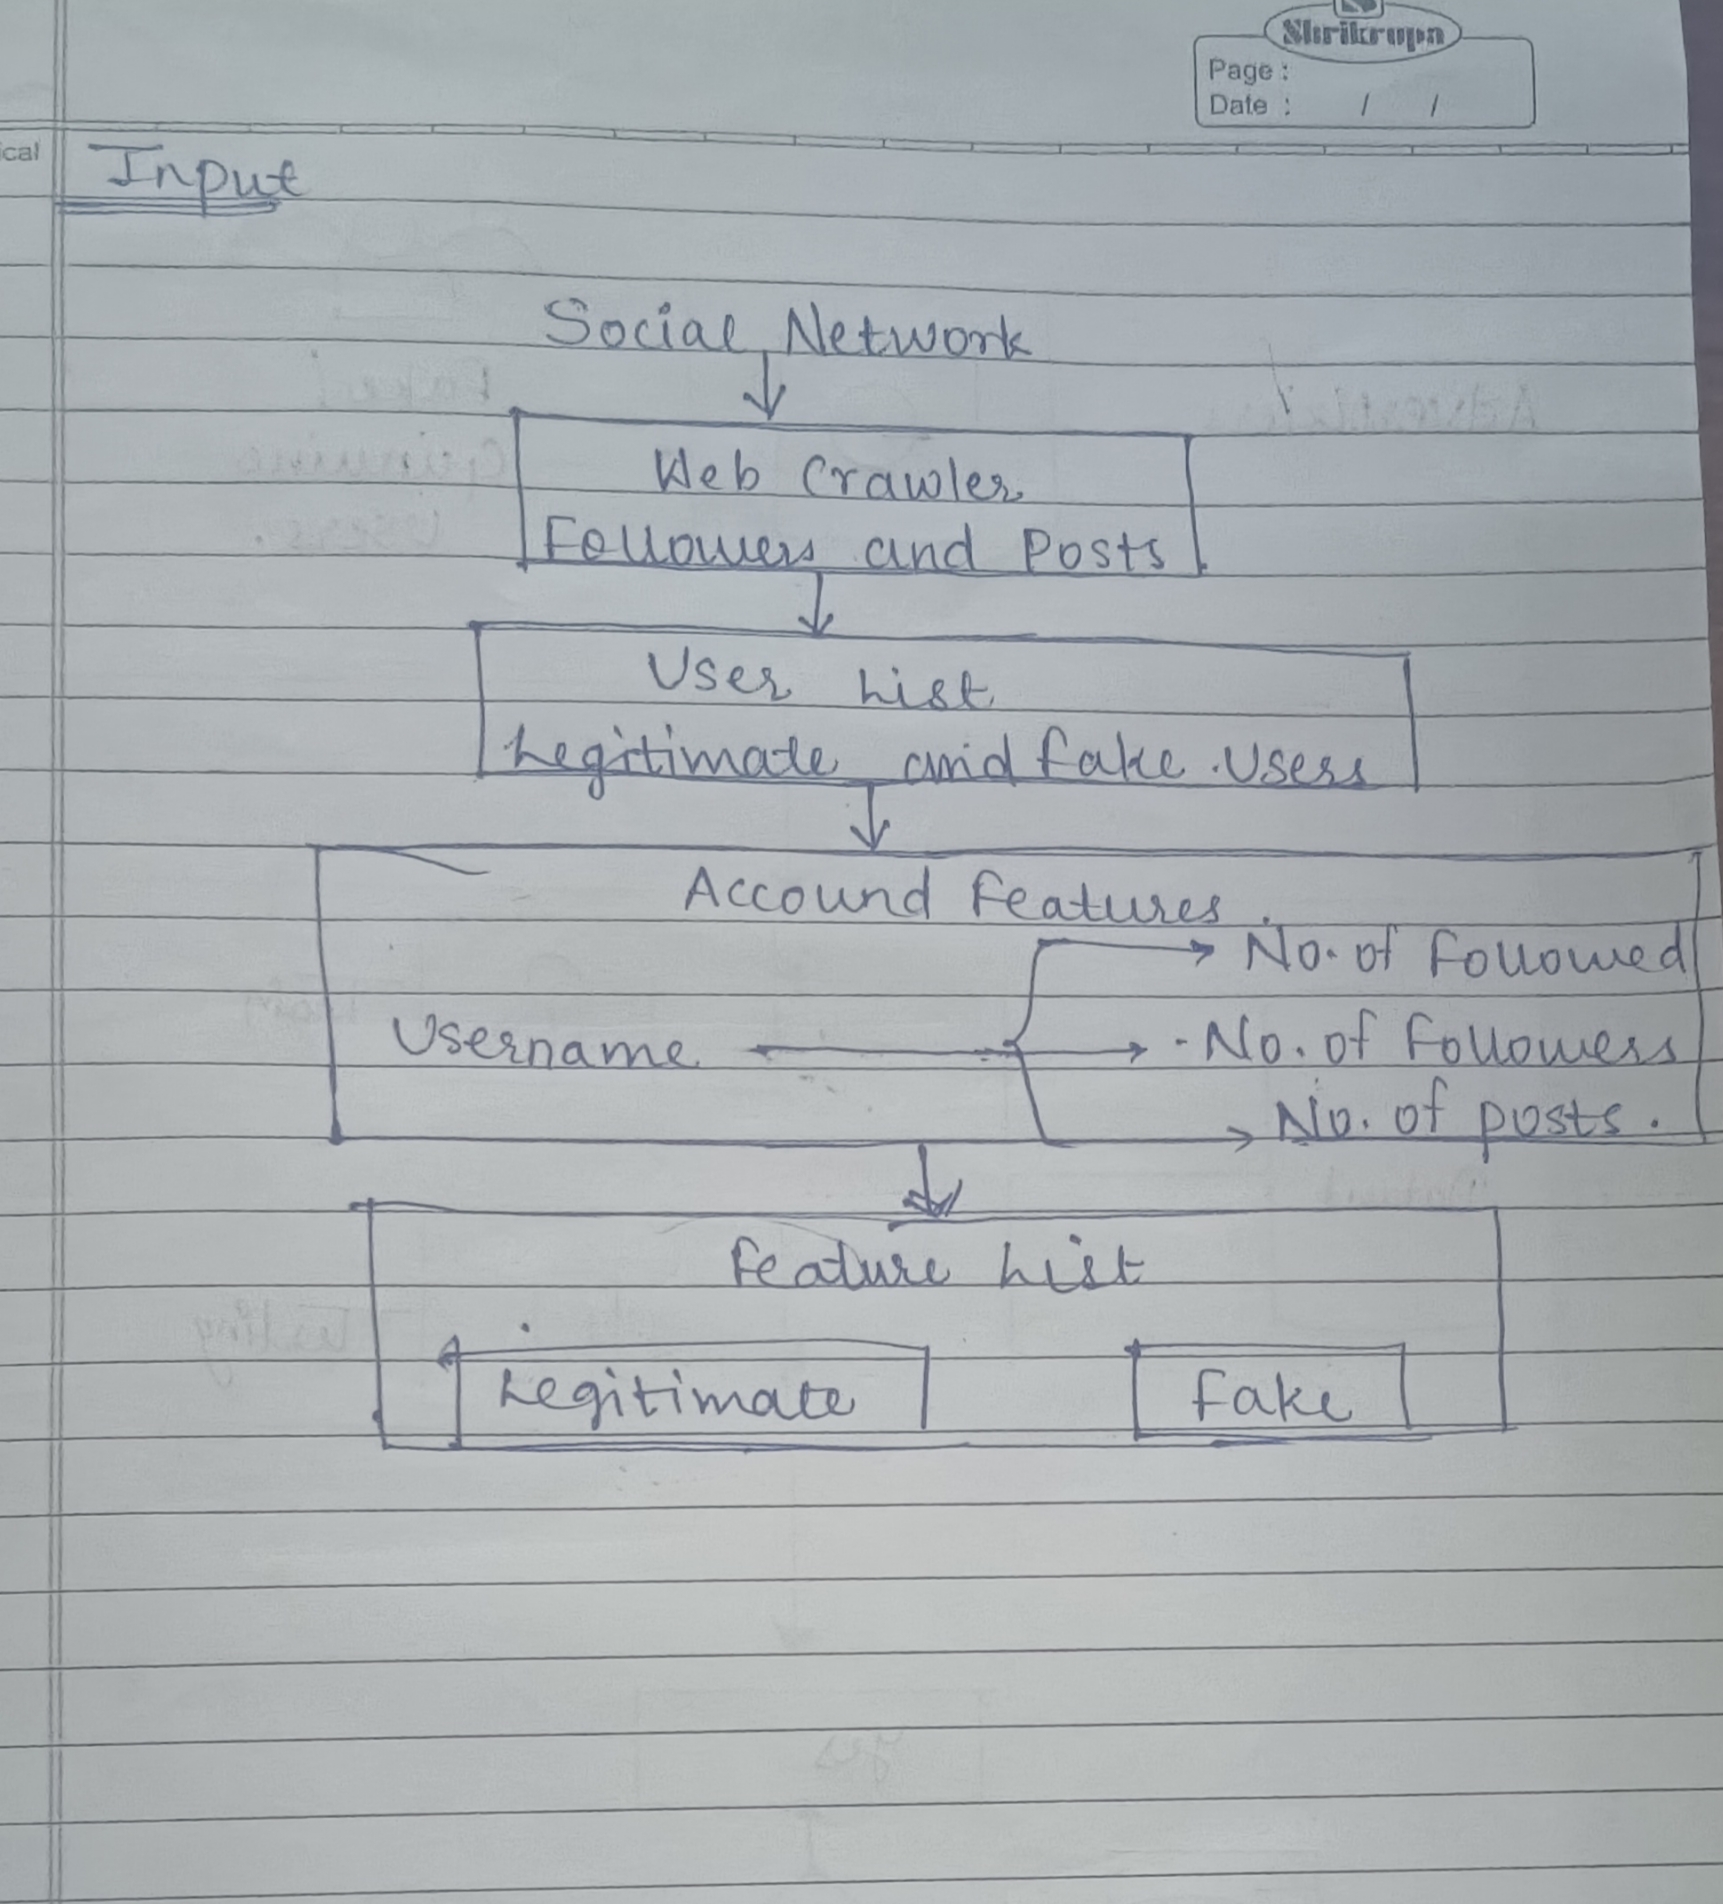 Shrikrupa
Page :
Date : / /
ical
Input
Social Network
Web Crawler
Followers and Posts
User List
Legitimate and fake Users
Accound Features.
No. of Followed
Username - No. of Followers
No. of posts.
Feature List
Legitimate Fake